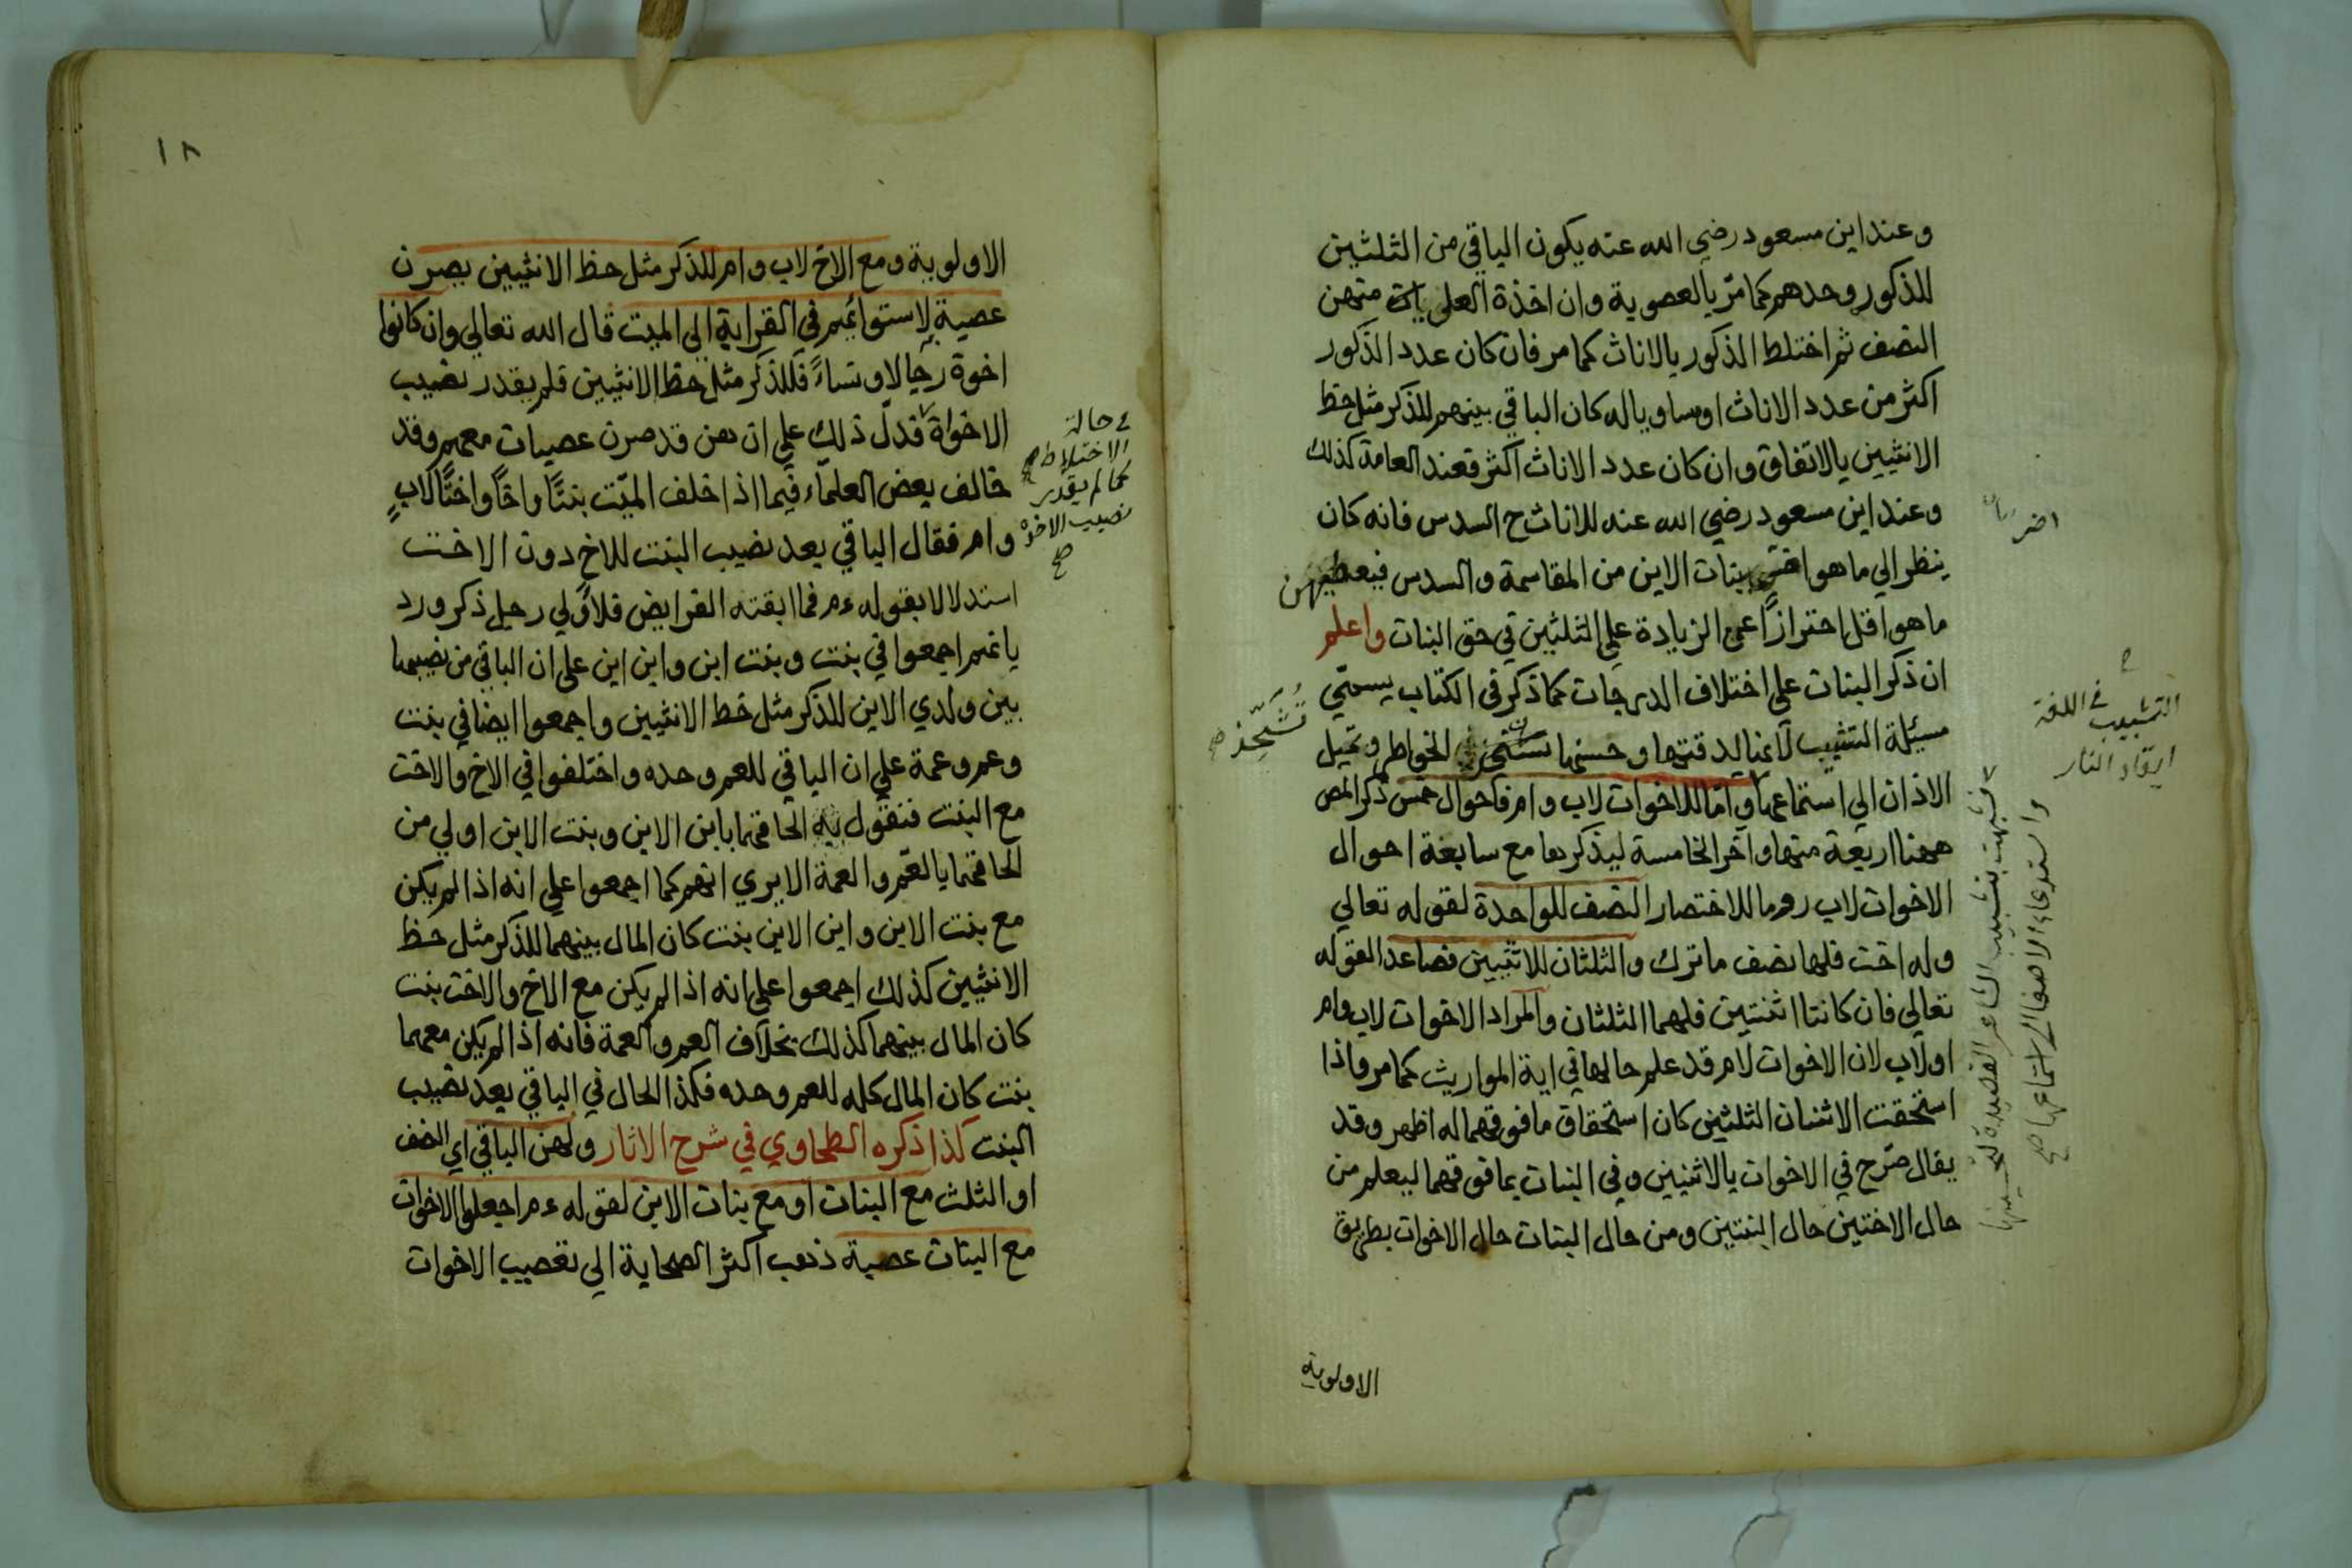 وعند ابن مسعود رضي الله عنه يكون الباقي من الثلثين
للذكور وحدهم كما مرّ بالعصوبة وان اخذة العلييات منهن
النصف ثم اختلط الذكور بالاناث كما مر فان كان عدد الذكور
اكثر من عدد الاناث او مساويا له كان الباقي بينهم للذكر مثل حظ
الانثيين بالاتفاق وان كان عدد الاناث اكثر فعند العامة كذلك
وعند ابن مسعود رضي الله عنه للاناث ح السدس فانه كان
ينظر الي ما هو اضر ببنات الابن من المقاسمة والسدس فيعطيهن
ما هو اقل احترازًا عن الزيادة علي الثلثين في حق البنات واعلم
ان ذكر البنات علي اختلاف الدرجات كما ذكر في الكتاب يسمّي
مسئلة التشبيب لانها لدقتها وحسنها تشحذ الخواطر وتميل
الاذان الي استماعها واما للاخوات لاب وام فاحوال خمس ذكر المص
ههنا اربعة منها واخر الخامسة ليذكرها مع سابعة احوال
الاخوات لاب روما للاختصار النصف للواحدة لقوله تعالي
وله اخت فلها نصف ما ترك والثلثان للاثنيين فصاعدا لقوله
تعالي فان كانتا اثنتين فلهما الثلثان والمراد الاخوات لاب وام
او لاب لان الاخوات لام قد علم حالها في اية المواريث كما مر واذا
استحقت الاثنتان الثلثين كان استحقاق ما فوقهما له اظهر وقد
يقال صرّح في الاخوات بالاثنيين وفي البنات بما فوقهما ليعلم من
حال الاختين حال البنتين ومن حال البنات حال الاخوات بطريق
الاولوية
اضر
تُشَحِّذ صح
التشبيب في اللغة
ايقاد النار
فشبهت بتشبيب الشاعر القصيدة لتحسينها
واستدعاء الاصغاء الي استماعها صح
١٨
الاولوية ومع الاخ لاب وام للذكر مثل حظ الانثيين يصرن
عصبة لاستوائهم في القرابة الي الميت قال الله تعالي وان كانوا
اخوة رجالا ونساءً فللذكر مثل حظ الانثيين فلم يقدر نصيب
الاخواة فدلّ ذلك علي ان هن قد صرن عصبات معهم وقد
خالف بعض العلماء فيما اذا خلف الميّت بنتًا واخًا واختًا لابٍ
وام فقال الباقي بعد نصيب البنت للاخ دون الاخت
استدلالا بقوله ءم فما ابقته الفرايض فلاَوْلي رجل ذكر ورد
بانهم اجمعوا في بنت وبنت ابن وابن ابن على ان الباقي من نصيبها
بين ولدي الابن للذكر مثل حظ الانثيين واجمعوا ايضا في بنت
وعم وعمة علي ان الباقي للعم وحده واختلفوا في الاخ والاخت
مع البنت فنقول الحاقهما بابن الابن وبنت الابن اولي من
الحاقهما بالعّم والعمة الا يري انهم كما اجمعوا علي انه اذا لم يكن
مع بنت الابن وابن الابن بنت كان المال بينهما للذكر مثل حظ
الانثيين كذلك اجمعوا علي انه اذا لم يكن مع الاخ والاخت بنت
كان المال بينهما كذلك بخلاف العم والعمة فانه اذا لم يكن معهما
بنت كان المال كله للعم وحده فكذا الحال في الباقي بعد نصيب
البنت كذا ذكره الطحاوي في شرح الاثار ولهن الباقي اي النصف
او الثلث مع البنات او مع بنات الابن لقوله ءم اجعلوا الاخوات
مع البنات عصبة ذهب اكثر الصحابة الي تعصيب الاخوات
حالة
الاختلاط
كما لم يقدر
نصيب الاخوة
صح